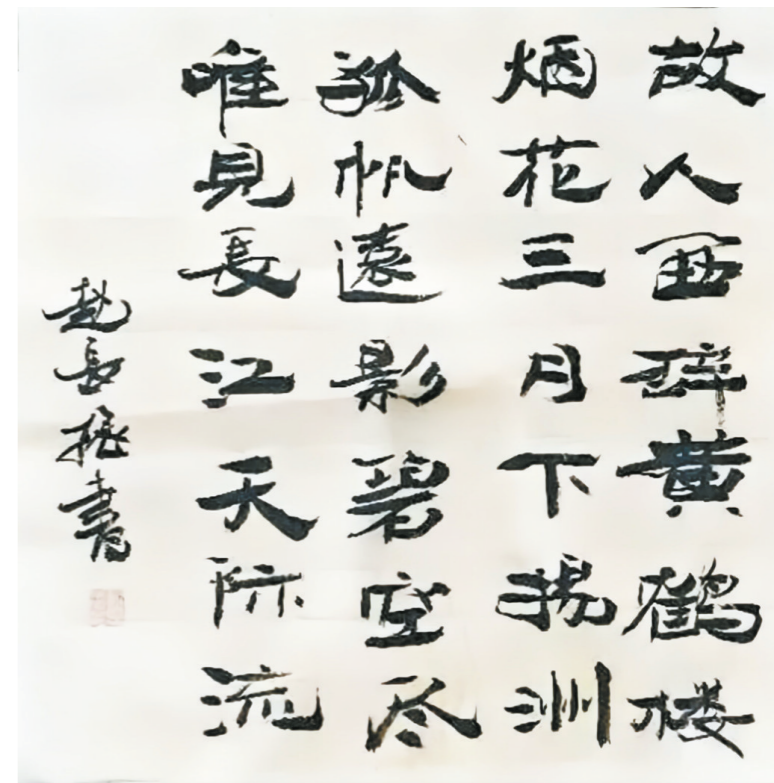 故人西辞黄鹤楼
烟花三月下扬洲
孤帆遠影碧空尽
唯見長江天际流
赵长振書